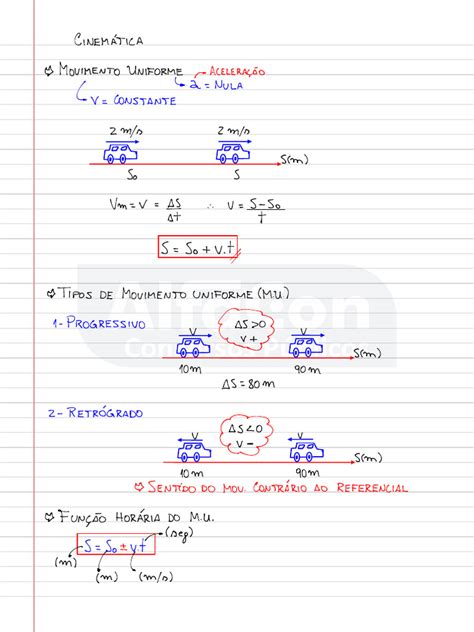 CINEMÁTICA
MOVIMENTO UNIFORME
ACELERAÇÃO
a = NULA
V = CONSTANTE
2 m/s 2 m/s
S(m)
S₀ S
Vm = V = ΔS/Δt ∴ V = S-S₀/t
S = S₀ + V.t
TIPOS DE MOVIMENTO UNIFORME (M.U)
1- PROGRESSIVO
V ΔS>0 V
V +
S(m)
10m 90m
ΔS = 80m
2- RETRÓGRADO
V ΔS<0 V
V -
S(m)
10m 90m
SENTIDO DO MOV. CONTRÁRIO AO REFERENCIAL
FUNÇÃO HORÁRIA DO M.U.
S = S₀ ± v.t
(seg)
(m) (m) (m/s)